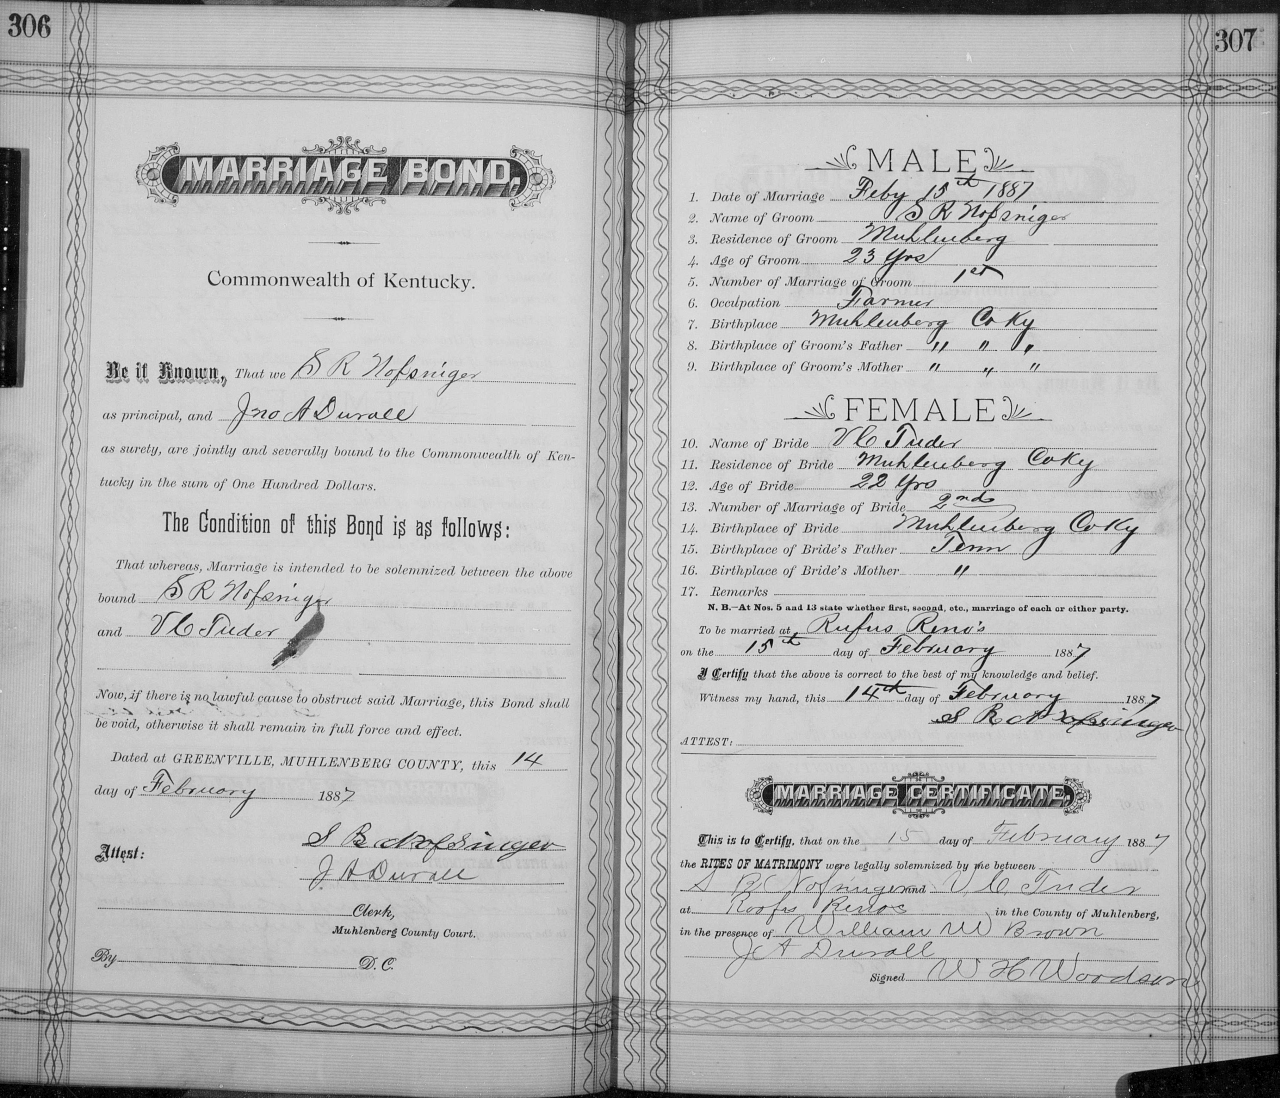 306
MARRIAGE BOND.
Commonwealth of Kentucky.
Be it Known, That we S R Nofsniger
as principal, and Jno A Duvall
as surety, are jointly and severally bound to the Commonwealth of Ken-
tucky in the sum of One Hundred Dollars.
The Condition of this Bond is as follows:
That whereas, Marriage is intended to be solemnized between the above
bound S R Nofsniger
and V C Tuder
Now, if there is no lawful cause to obstruct said Marriage, this Bond shall
be void, otherwise it shall remain in full force and effect.
Dated at GREENVILLE, MUHLENBERG COUNTY, this 14
day of February 1887
S R Nofsinger
Attest:
J A Duvall
Clerk,
Muhlenberg County Court.
By D. C.
307
MALE
1. Date of Marriage Feby 15th 1887
2. Name of Groom S R Nofsniger
3. Residence of Groom Muhlenberg
4. Age of Groom 23 yrs
5. Number of Marriage of Groom 1st
6. Occulpation Farmer
7. Birthplace Muhlenberg Co Ky
8. Birthplace of Groom's Father " " "
9. Birthplace of Groom's Mother " " "
FEMALE
10. Name of Bride V C Tuder
11. Residence of Bride Muhlenberg Co Ky
12. Age of Bride 22 yrs
13. Number of Marriage of Bride 2nd
14. Birthplace of Bride Muhlenberg Co Ky
15. Birthplace of Bride's Father Tenn
16. Birthplace of Bride's Mother "
17. Remarks
N. B.—At Nos. 5 and 13 state whether first, second, etc., marriage of each or either party.
To be married at Rufus Reno's
on the 15th day of February 1887
I Certify that the above is correct to the best of my knowledge and belief.
Witness my hand, this 14th day of February 1887
S R Nofsinger
ATTEST:
MARRIAGE CERTIFICATE.
This is to Certify, that on the 15 day of February 1887
the RITES OF MATRIMONY were legally solemnized by me between
S R Nofsniger and V C Tuder
at Roofs Renos in the County of Muhlenberg,
in the presence of William W Brown
J A Duvall
Signed W H Woodson